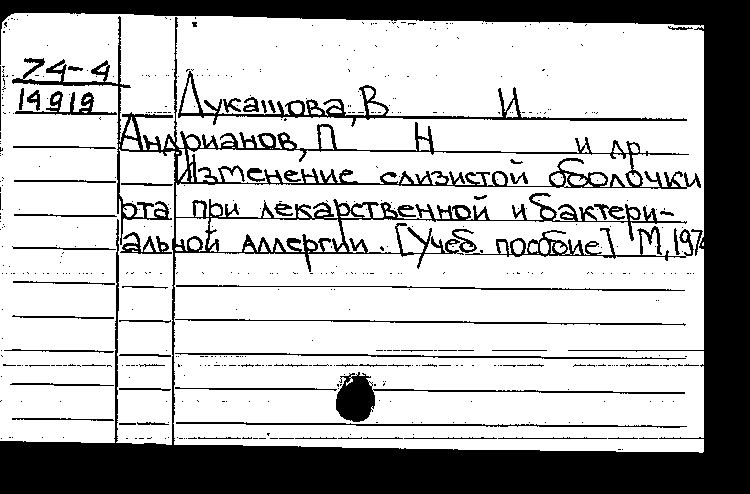 74-4
14919
Лукашова, В И
Андрианов, П Н и др.
Изменение слизистой оболочки
рта при лекарственной и бактери-
альной аллергии. [Учеб. пособие] М, 197